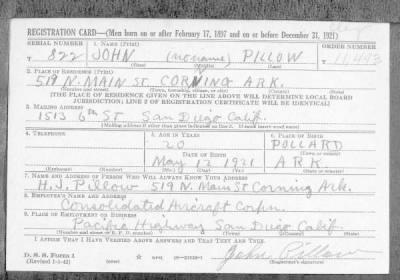 REGISTRATION CARD—(Men born on or after February 17, 1897 and on or before December 31, 1921)
SERIAL NUMBER 1. NAME (Print) ORDER NUMBER
822 JOHN (no name) PILLOW 11,443
(First) (Middle) (Last)
2. PLACE OF RESIDENCE (Print)
519 N. MAIN St. CORNING ARK.
(Number and street) (Town, township, village, or city) (County) (State)
[THE PLACE OF RESIDENCE GIVEN ON THE LINE ABOVE WILL DETERMINE LOCAL BOARD
JURISDICTION; LINE 2 OF REGISTRATION CERTIFICATE WILL BE IDENTICAL]
3. MAILING ADDRESS
1513 6th ST San Diego Calif.
[Mailing address if other than place indicated on line 2. If same insert word same]
4. TELEPHONE 5. AGE IN YEARS 6. PLACE OF BIRTH
20 POLLARD
DATE OF BIRTH (Town or county)
May 12 1921 ARK.
(Exchange) (Number) (Mo.) (Day) (Yr.) (State or country)
7. NAME AND ADDRESS OF PERSON WHO WILL ALWAYS KNOW YOUR ADDRESS
H. J. Pillow 519 N. Main St Corning Ark.
8. EMPLOYER'S NAME AND ADDRESS
Consolidated Aircraft Corpn.
9. PLACE OF EMPLOYMENT OR BUSINESS
Pacific Highway San Diego Calif.
(Number and street or R. F. D. number) (Town) (County) (State)
I AFFIRM THAT I HAVE VERIFIED ABOVE ANSWERS AND THAT THEY ARE TRUE.
D. S. S. Form 1
(Revised 1-1-42) (over) John Pillow
(Registrant's signature)